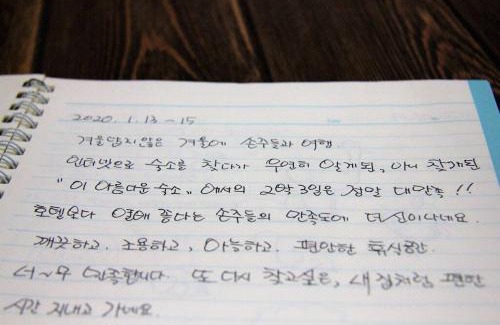 2020. 1. 13 - 15
겨울답지않은 겨울에 손주들과 여행.
인터넷으로 숙소를 찾다가 우연히 알게된, 아니 찾게된
"이 아름다운 숙소" 에서의 2박3일은 정말 대만족!!
호텔보다 열배 좋다는 손주들의 만족도에 더 신이나네요.
깨끗하고, 조용하고, 아늑하고. 편안한 휴식공간.
너~무 만족합니다. 또 다시 찾고싶은, 내 집처럼 편한
시간 지내고 가네요.